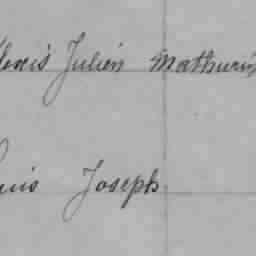 Alexis Julien Mathurin
Louis Joseph